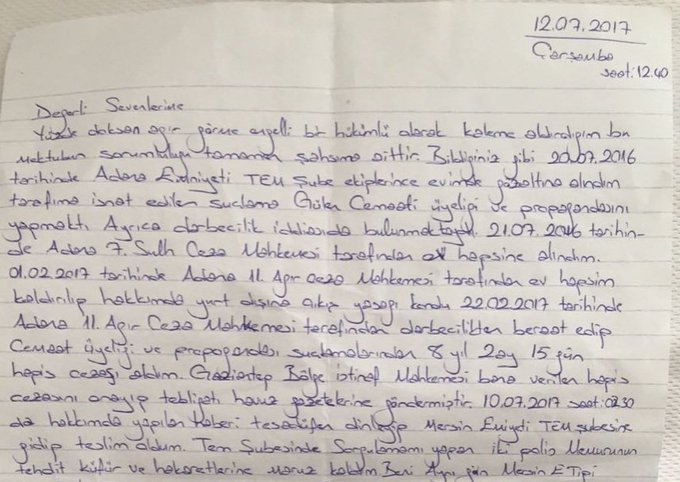 12.07.2017
Çarşamba
saat:12.40
Değerli Sevenlerime
Yüzde doksan ağır görme engelli bir hükümlü olarak kaleme aldırdığım bu
mektubun sorumluluğu tamamen şahsıma aittir. Bildiğiniz gibi 20.07.2016
tarihinde Adana Emniyeti TEM Şube ekiplerince evimde gözaltına alındım
tarafıma isnat edilen suçlama Gülen Cemaati üyeliği ve propagandasını
yapmaktı Ayrıca darbecilik iddiasıda bulunmaktaydı. 21.07.2016 tarihin-
de Adana 7. Sulh Ceza Mahkemesi tarafından ev hapsine alındım.
01.02.2017 tarihinde Adana 11. Ağır Ceza Mahkemesi tarafından ev hapsim
kaldırılıp hakkımda yurt dışına çıkış yasağı kondu 22.02.2017 tarihinde
Adana 11. Ağır Ceza Mahkemesi tarafından darbecilikten beraat edip
Cemaat üyeliği ve propagandası suçlamalarından 8 yıl 2 ay 15 gün
hapis cezası aldım. Gaziantep Bölge istinaf Mahkemesi bana verilen hapis
cezasını onayıp tebligatı havuz gazetelerine göndermiştir. 10.07.2017 saat:02.30
da hakkımda yapılan Haberi tesadüfen dinleyip Mersin Emiyeti TEM şubesine
gidip teslim oldum. Tem Şubesinde Sorgulamamı yapan iki polis Memurunun
tehdit küfür ve hakaretlerine maruz kaldım. Beni Aynı gün Mersin E Tipi